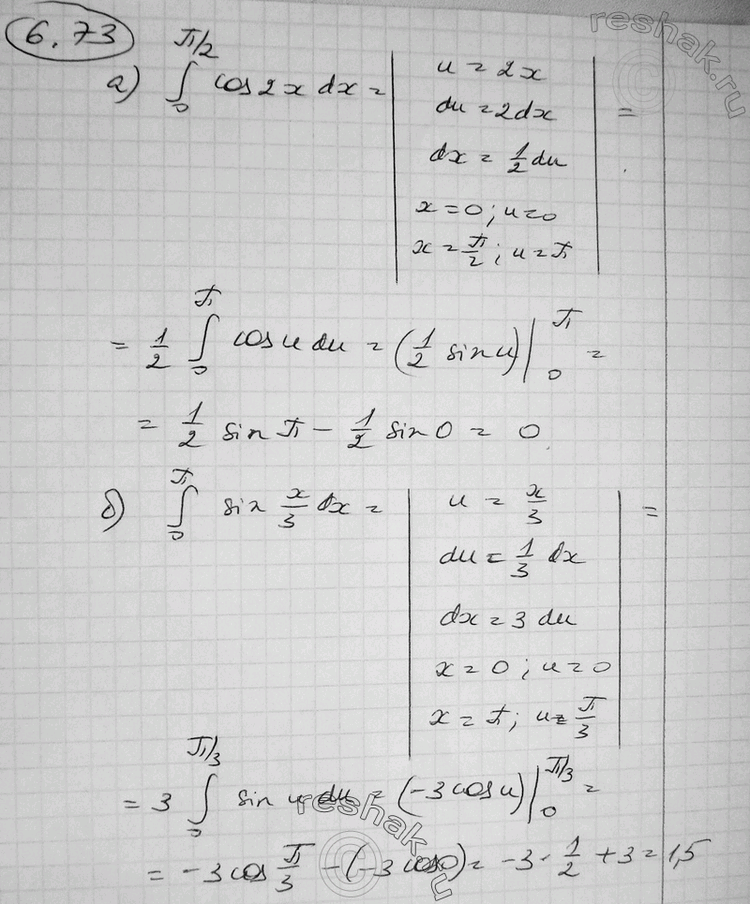 6.73
reshak.ru
а) ∫₀^{π/2} cos2x dx = | u = 2x
du = 2dx
dx = 1/2 du
x = 0; u = 0
x = π/2; u = π | =
= 1/2 ∫₀^π cosu du = (1/2 sinu)|₀^π =
= 1/2 sinπ - 1/2 sin0 = 0
б) ∫₀^π sin x/3 dx = | u = x/3
du = 1/3 dx
dx = 3 du
x = 0; u = 0
x = π; u = π/3 | =
= 3 ∫₀^{π/3} sin u du = (-3cosu)|₀^{π/3} =
= -3cos π/3 - (-3cos0) = -3 · 1/2 + 3 = 1,5
reshak.ru